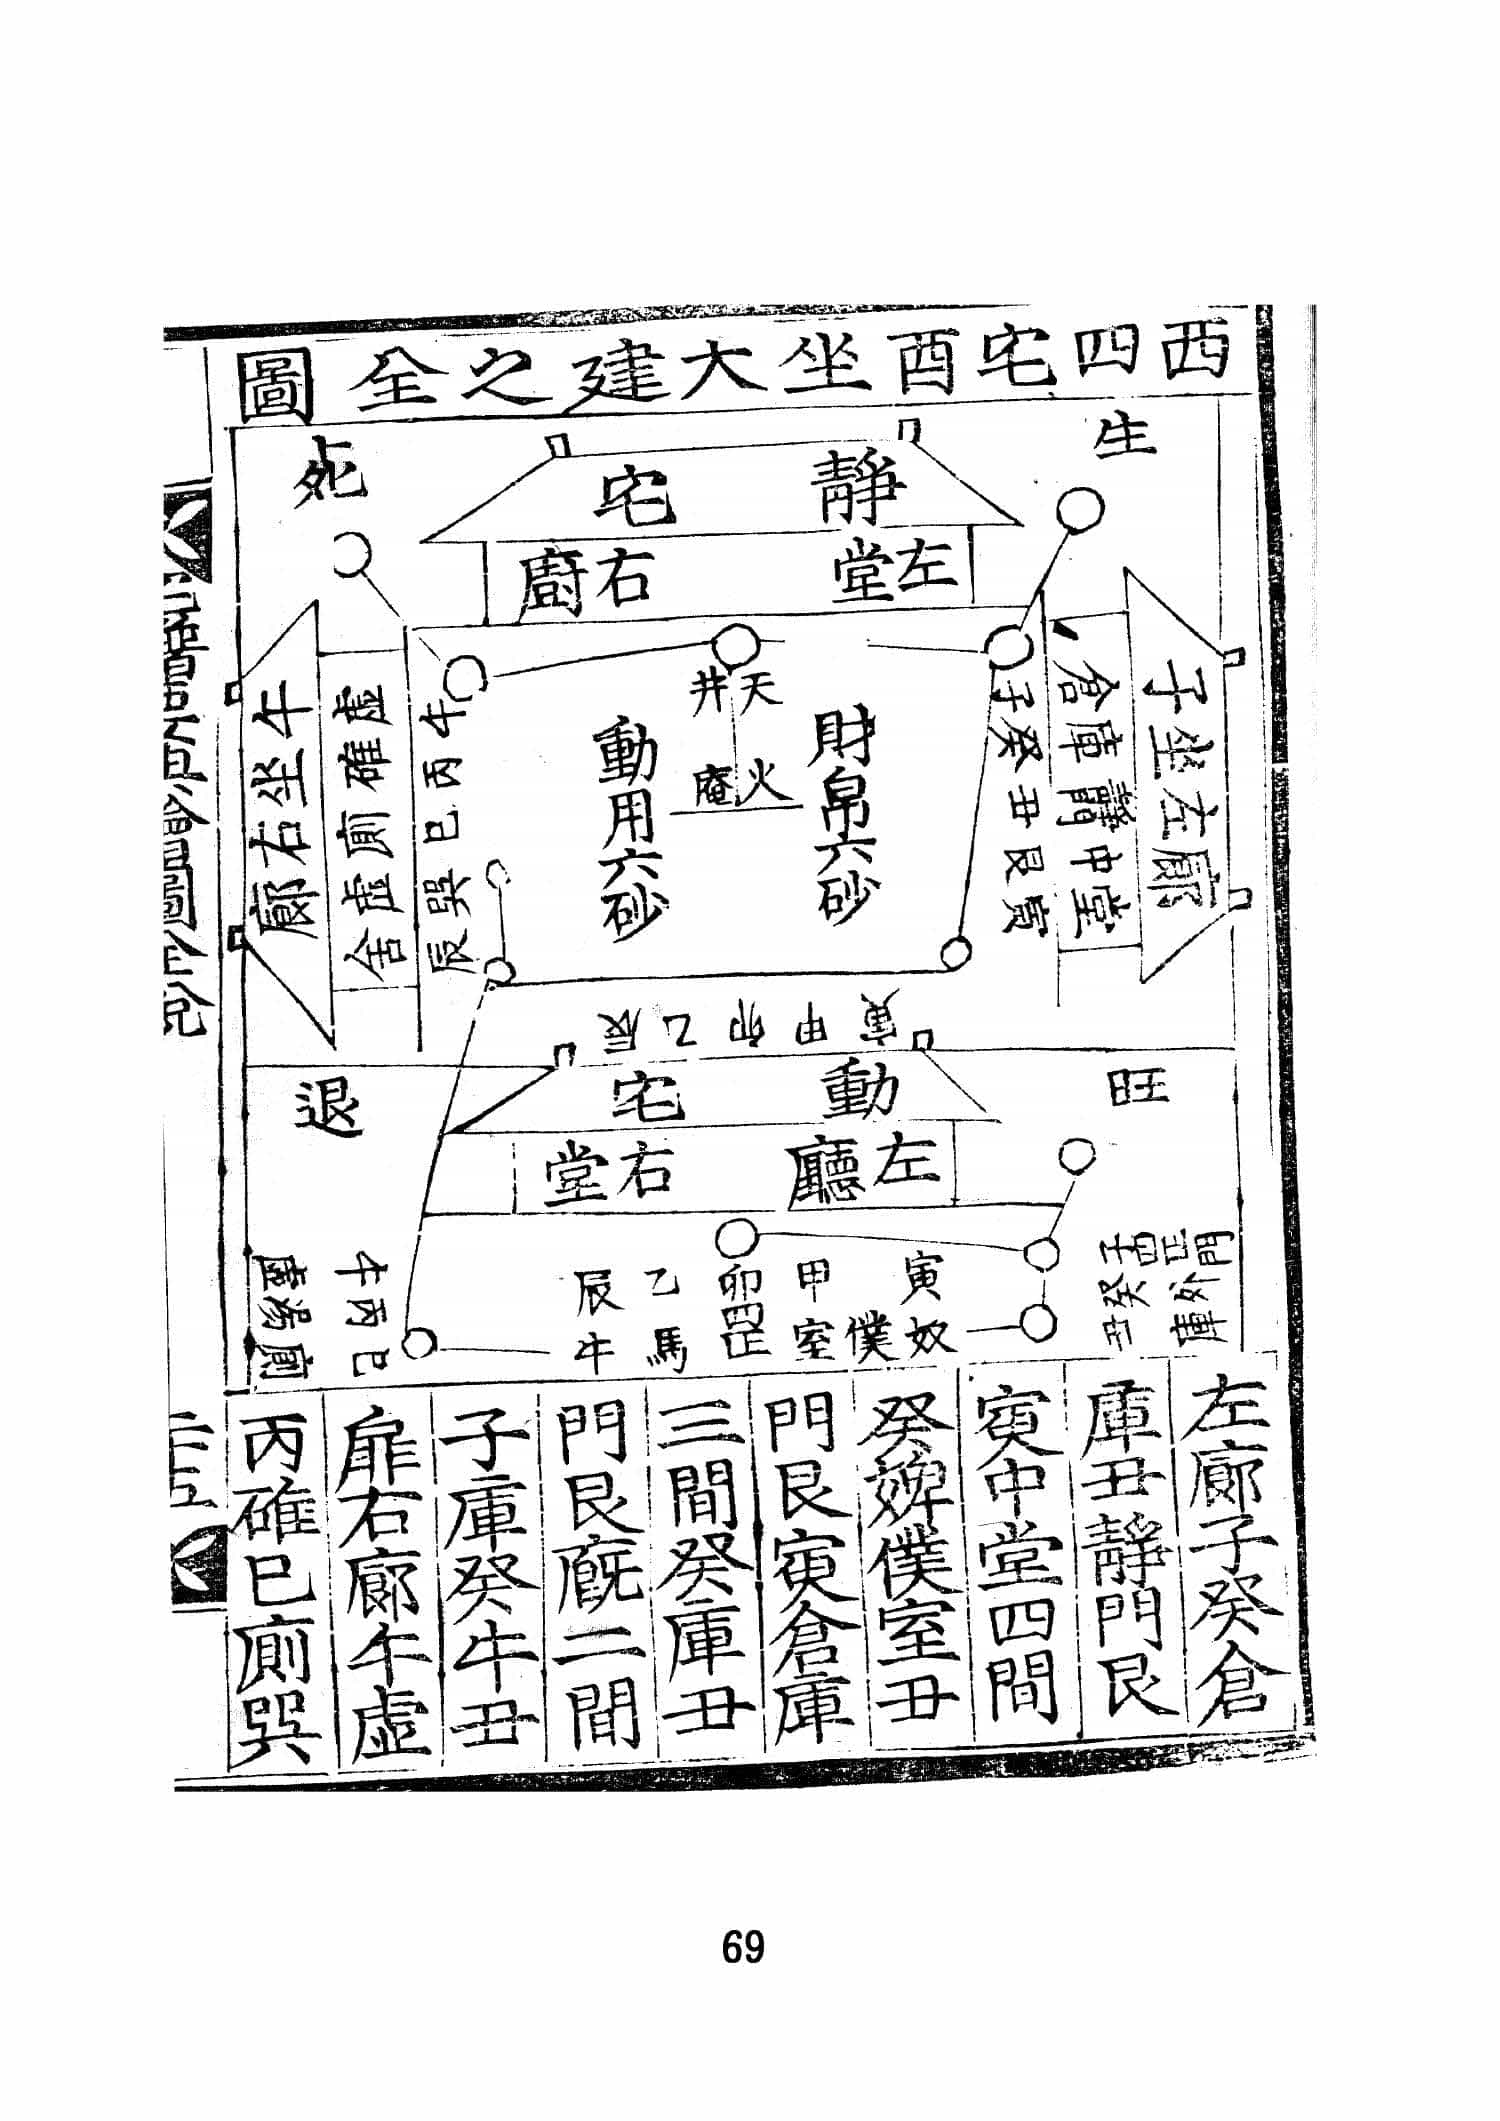 西四宅酉坐大建之全圖
生
死
靜宅
左堂
右廚
子坐左廊
倉庫
中堂
子癸丑艮寅
天井
火庵
財帛六砂
動用六砂
午丙巳巽辰
虛碓廁虛舍
午坐右廊
寅甲卯乙辰
旺
退
動宅
左廳
右堂
寅甲卯乙辰
奴僕室
馬牛
門外庫
子
癸
午丙巳
廁
左廊子癸倉
庫丑靜門艮
寅中堂四間
癸婢僕室丑
門艮寅倉庫
三間癸庫丑
門艮廐二間
子庫癸牛丑
扉右廊午虛
丙碓巳廁巽
69